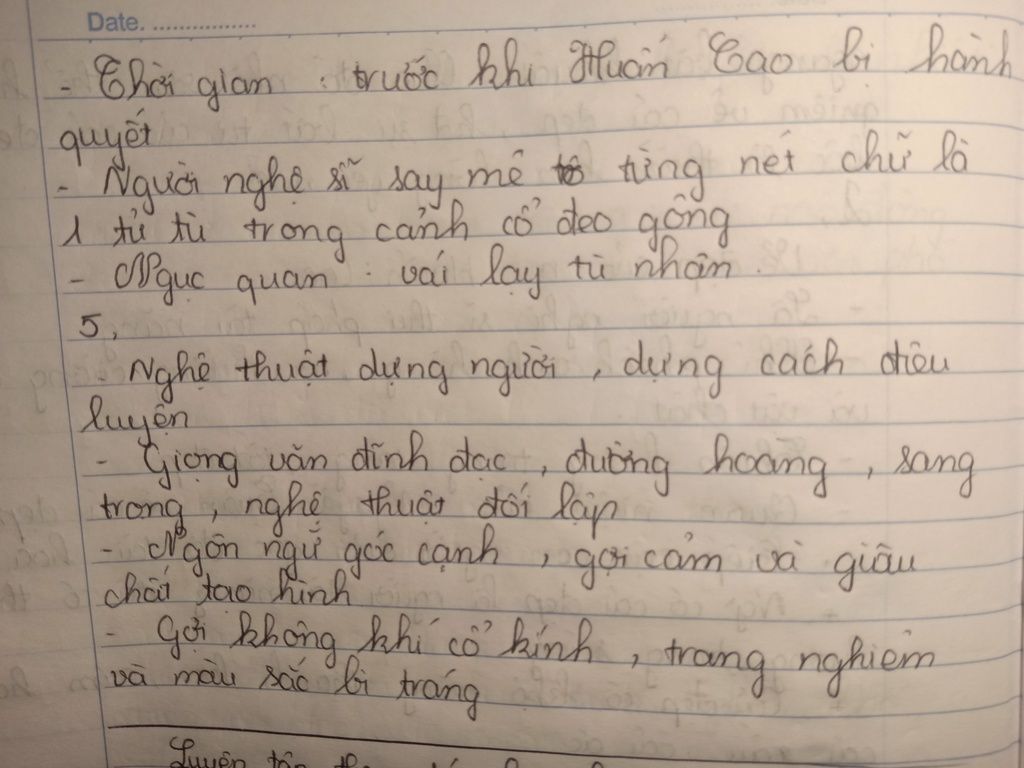 Date. ................
- Thời gian : trước khi Huấn Cao bị hành
quyết
- Người nghệ sĩ say mê tô từng nét chữ là
1 tử tù trong cảnh cổ đeo gông
- Ngục quan : vái lạy tù nhân.
5,
- Nghệ thuật dựng người, dựng cách điêu
luyện
- Giọng văn đĩnh đạc, đường hoàng, sang
trọng, nghệ thuật đối lập
- Ngôn ngữ góc cạnh, gợi cảm và giàu
chất tạo hình
- Gợi không khí cổ kính, trang nghiêm
và màu sắc bi tráng
Luyện tập